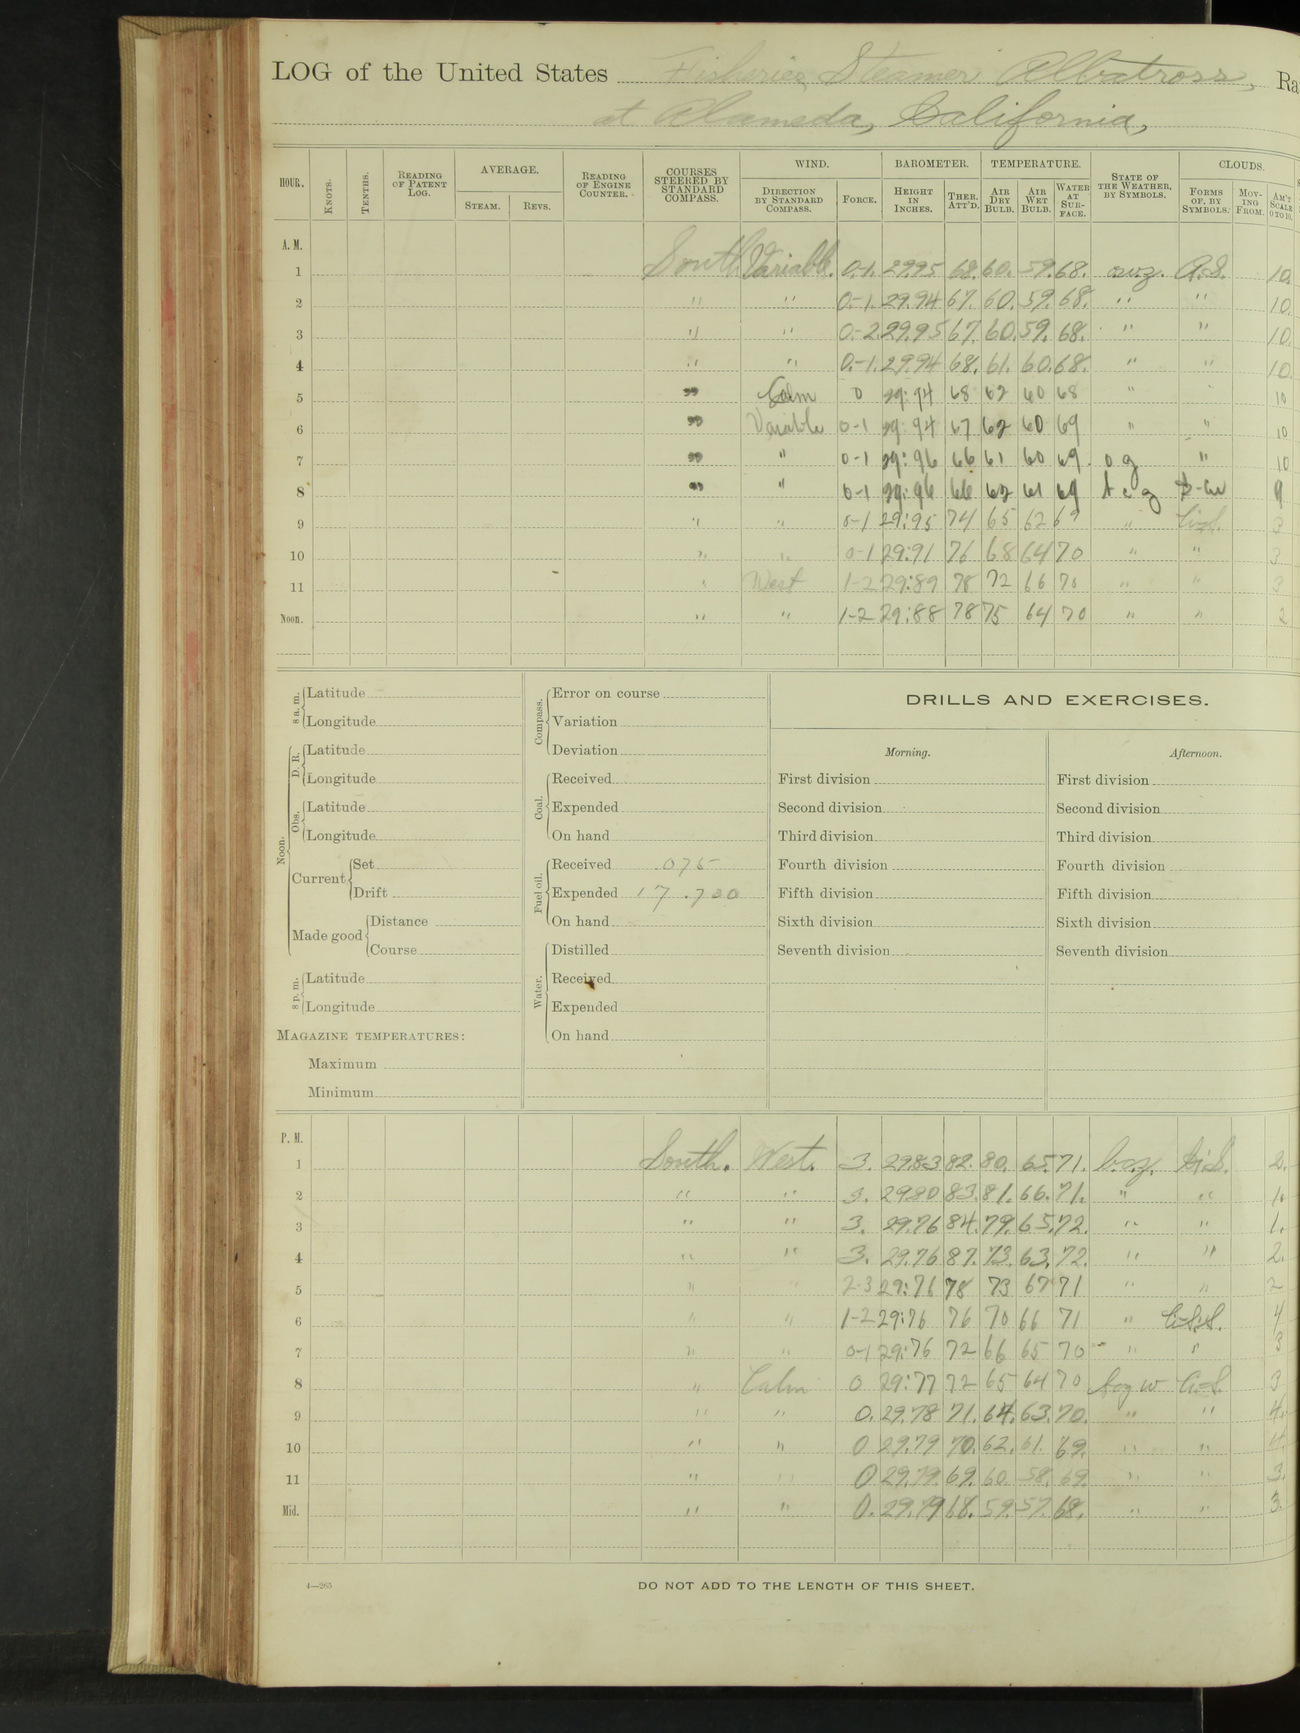 LOG of the United States Fisheries Steamer Albatross, Ra
at Alameda, California,
HOUR. KNOTS. TENTHS. READING OF PATENT LOG. AVERAGE. STEAM. REVS. READING OF ENGINE COUNTER. COURSES STEERED BY STANDARD COMPASS. WIND. DIRECTION BY STANDARD COMPASS. FORCE. BAROMETER. HEIGHT IN INCHES. THER. ATT'D. TEMPERATURE. AIR DRY BULB. AIR WET BULB. WATER AT SURFACE. STATE OF THE WEATHER, BY SYMBOLS. CLOUDS. FORMS OF, BY SYMBOLS. MOVING FROM. AM'T SCALE 0 TO 10.
A. M.
1 South Variable. 0-1. 29.95 68. 60. 59. 68. A.S. 10.
2 " " 0-1. 29.94 67. 60. 59. 68. " " 10.
3 " " 0-2. 29.95 67. 60. 59. 68. " " 10.
4 " " 0-1. 29.94 68. 61. 60. 68. " " 10.
5 " Calm 0 29:94 68 62 60 68 " " 10
6 " Variable 0-1 29:94 67 62 60 69 " " 10
7 " " 0-1 29:96 66 61 60 69. o g " 10
8 " " 0-1 29:96 66 62 61 69 9
9 " " 0-1 29:95 74 65 62 69 " Ci-S. 3
10 " " 0-1 29:91 76 68 64 70 " " 3
11 " West 1-2 29:89 78 72 66 70 " " 3
Noon. " " 1-2 29:88 78 75 64 70 " " 2
8 a. m. Latitude
Longitude
Noon. D. R. Latitude
Longitude
Obs. Latitude
Longitude
Current Set
Drift
Made good Distance
Course
8 p. m. Latitude
Longitude
MAGAZINE TEMPERATURES:
Maximum
Minimum
Compass. Error on course
Variation
Deviation
Coal. Received
Expended
On hand
Fuel oil. Received .075
Expended 17.700
On hand
Water. Distilled
Received
Expended
On hand
DRILLS AND EXERCISES.
Morning.
First division
Second division
Third division
Fourth division
Fifth division
Sixth division
Seventh division
Afternoon.
First division
Second division
Third division
Fourth division
Fifth division
Sixth division
Seventh division
P. M.
1 South. West. 3. 29.83 82. 80. 65. 71. b.c.z. Ci.S. 2.
2 " " 3. 29.80 83. 81. 66. 71. " " 1.
3 " " 3. 29.76 84. 79. 65. 72. " " 1.
4 " " 3. 29.76 87. 73. 63. 72. " " 2.
5 " " 2-3 29:76 78 73 67 71 " " 2
6 " " 1-2 29:76 76 70 66 71 " 4
7 " " 0-1 29:76 72 66 65 70 " " 3
8 " Calm 0 29:77 72 65 64 70 3
9 " " 0. 29.78 71. 64. 63. 70. " " 4.
10 " " 0 29.79 70. 62. 61. 69. " " 4.
11 " " 0 29.79. 69. 60. 58. 69. " " 3.
Mid. " " 0. 29.79 68. 59. 57. 68. " " 3.
4—265
DO NOT ADD TO THE LENGTH OF THIS SHEET.